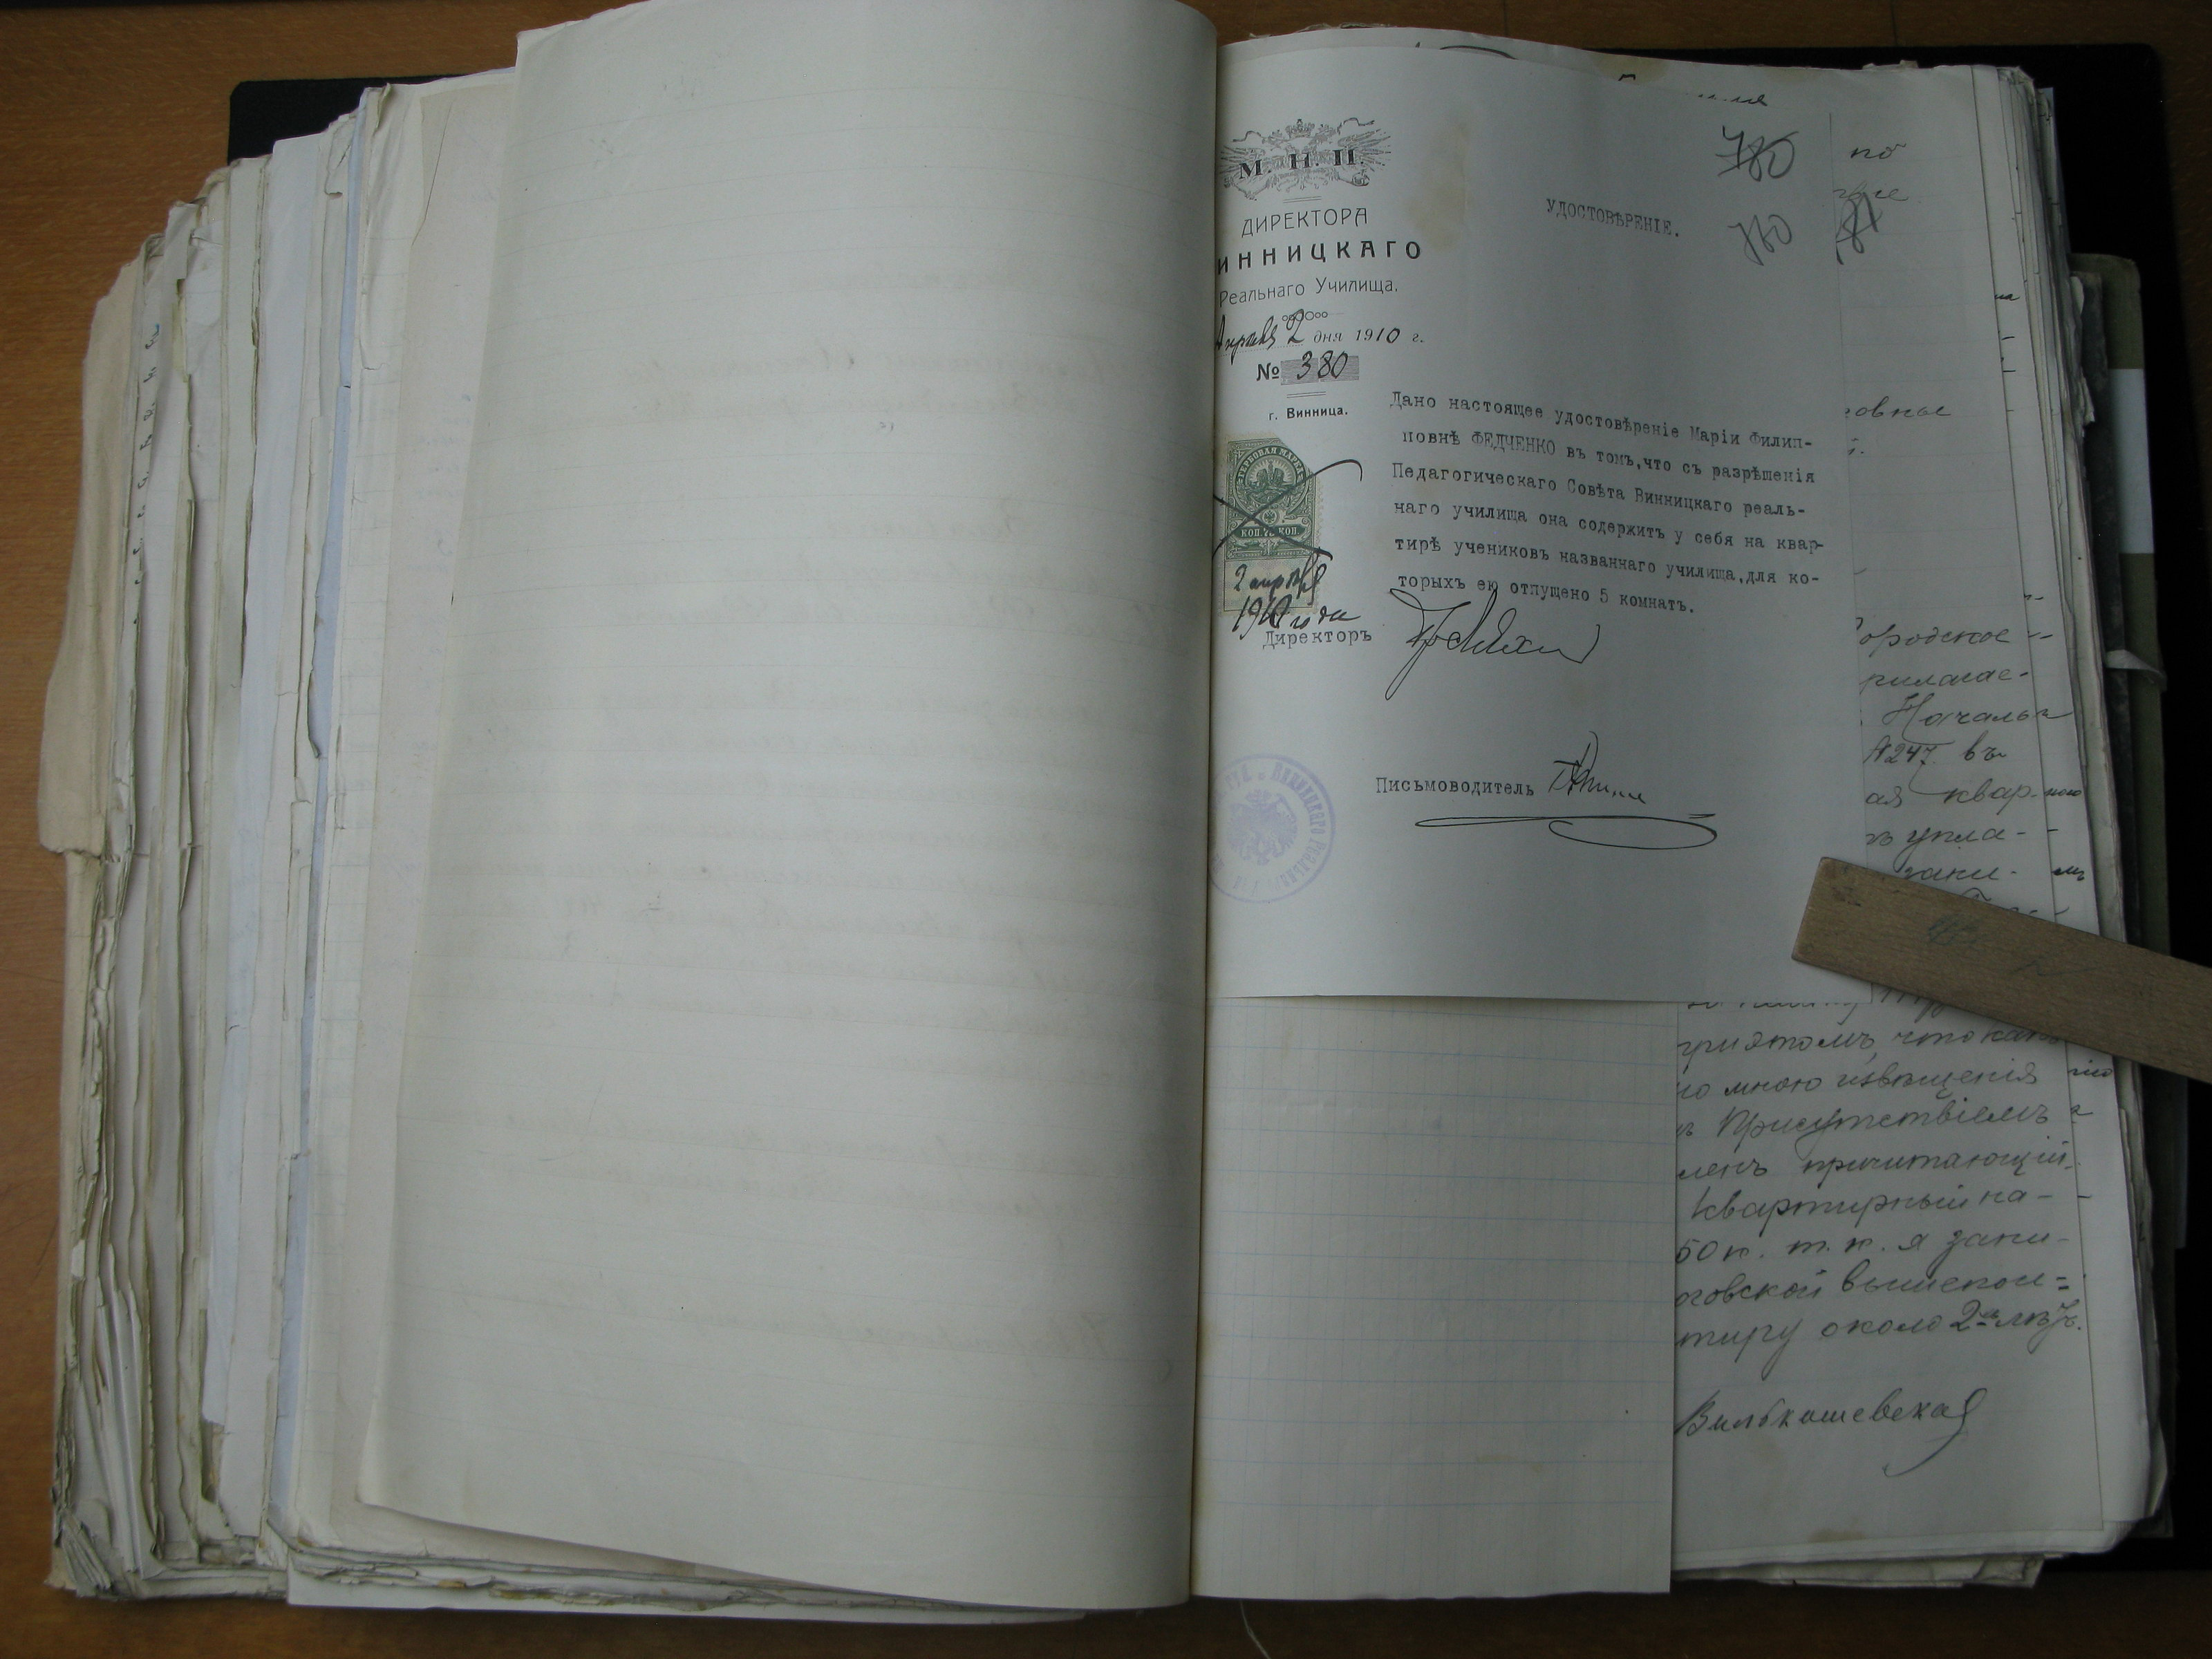 М. Н. П.
ДИРЕКТОРА
ИННИЦКАГО
Реальнаго Училища.
Апрѣля 2 дня 1910 г.
№ 380
г. Винница.
780
УДОСТОВѢРЕНІЕ.
780
81
Дано настоящее удостовѣреніе Маріи Филип-
повнѣ ФЕДЧЕНКО въ томъ,что съ разрѣшенія
Педагогическаго Совѣта Винницкаго реаль-
наго училища она содержитъ у себя на квар-
тирѣ учениковъ названнаго училища,для ко-
торыхъ ею отпущено 5 комнатъ.
ГЕРБОВАЯ МАРКА
КОП. 75 КОП.
2 апрѣля
1910 года
Директоръ
Письмоводитель
Винницкаго Реальнаго
по
овные
ородское
рилагае-
Началь
№247. въ
ая квар-
ъ упла-
зани-
приэтомъ, что какъ
по мною извѣщенія
ъ Присутствіемъ
ленъ причитающій-
Квартирный на-
50 к. т. к. я зани-
оговской вышепои-
тиру около 2-хъ лѣтъ.
Вильбашевская